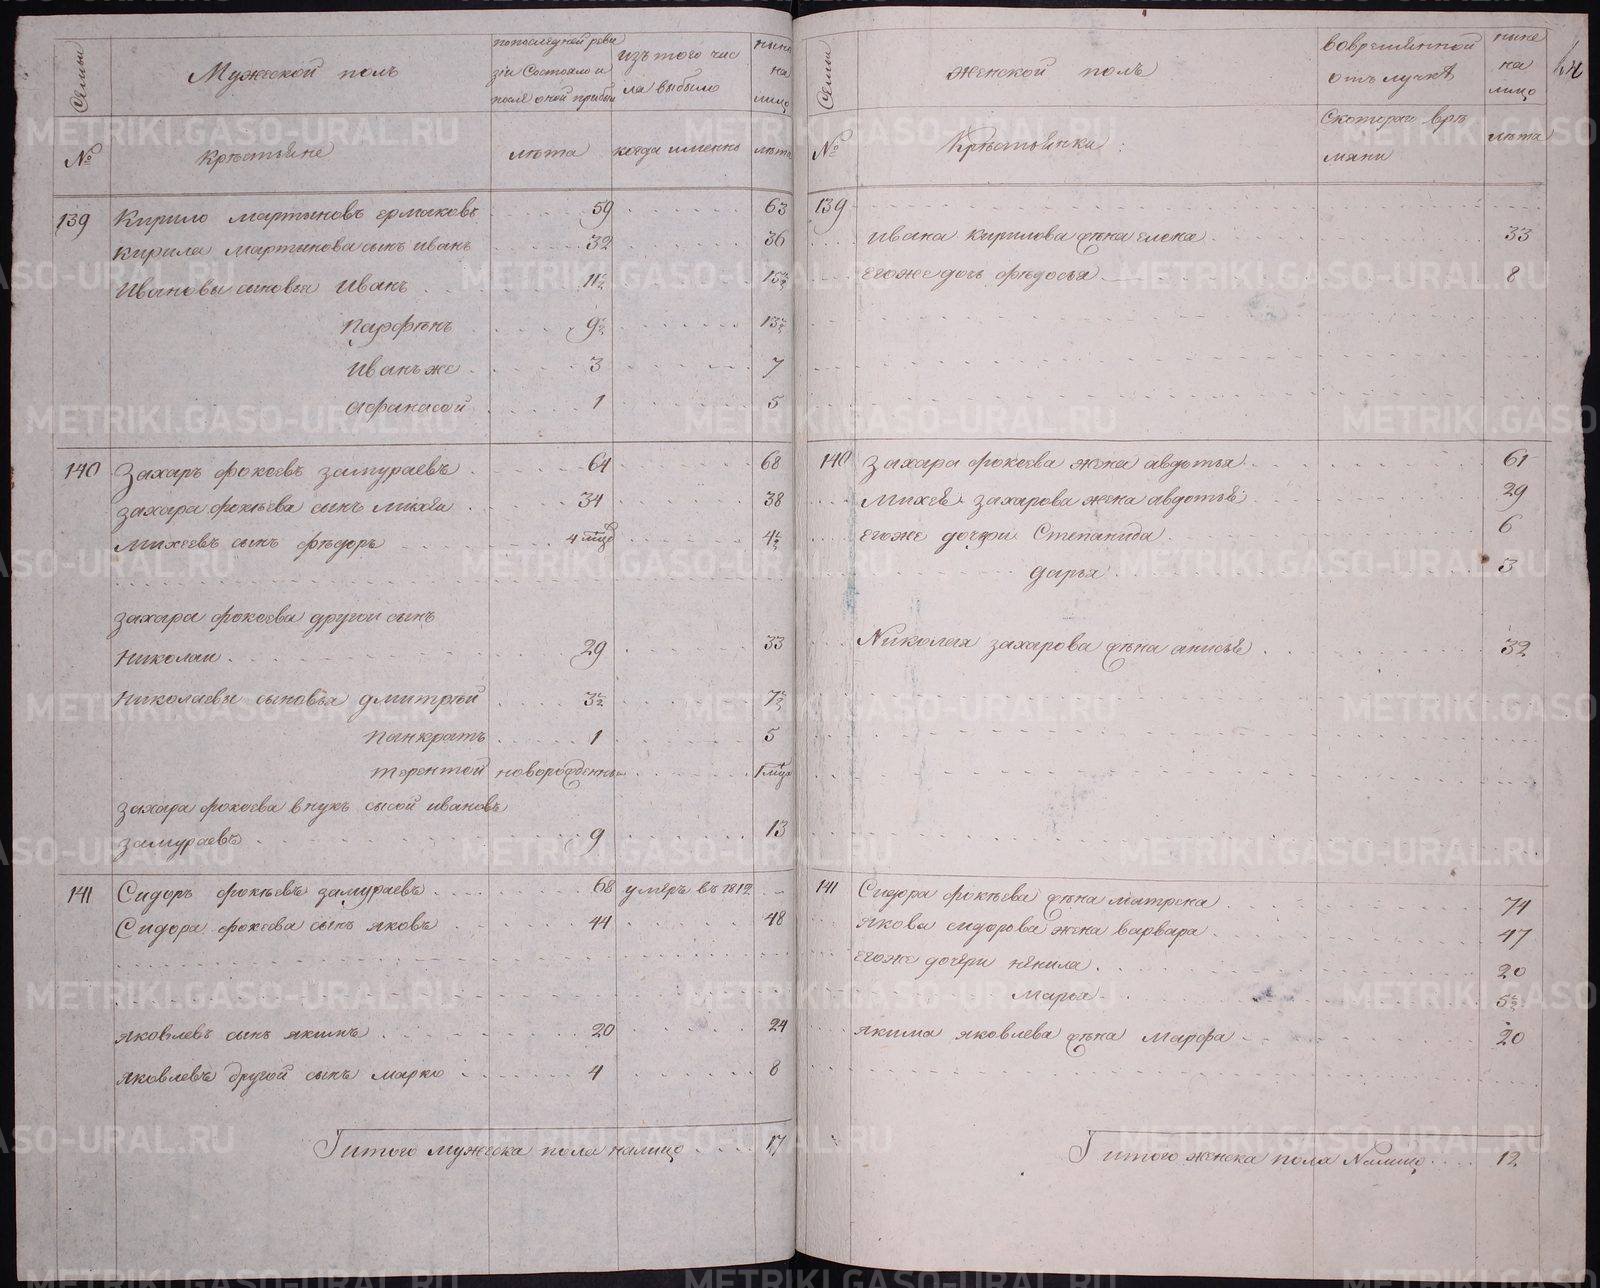 Семьи
Мужеской полъ
попоследней реви
зіи состояло и
после оной прибы
изъ того чис
ла выбыло
ныне
на
лицо
№
Крестьяне
лѣта
когда именно
лѣта
139 Кирило мартыновъ ермаковъ 59 63
Кирила мартынова сынъ иванъ 32 36
Ивановы сыновья Иванъ 11½ 15½
Парфенъ 9½ 13½
Иванъ же 3 7
Афанасей 1 5
140 Захаръ фокеевъ замураевъ 64 68
Захара фокеева сынъ михей 34 38
Михеевъ сынъ федоръ 4 мце 4½
Захара фокеева другой сынъ
Николаи 29 33
Николаевы сыновья дмитрей 3½ 7½
Панкратъ 1 5
терентей новорожденны 1 мце
Захара фокеева внукъ сысой ивановъ
замураевъ 9 13
141 Сидоръ фокеевъ замураевъ 68 умеръ въ 1812
Сидора фокеева сынъ яковъ 44 48
яковлевъ сынъ якимъ 20 24
яковлевъ другой сынъ марко 4 8
Итого мужеска пола налицо 17
Семьи
Женской полъ
вовременной
отълучкѣ
ныне
на
лицо
№
Крестьянка
Скотораго вре
мяни
лѣта
139
ивана кирилова жена елена 33
егоже дочь федосья 8
140 Захара фокеева жена авдотья 61
Михея захарова жена авдотья 29
егоже дочери Степанида 6
дарья 3
Николая захарова жена анисья 32
141 Сидора фокеева жена матрена 74
якова сидорова жена варвара 47
егоже дочери ненила 20
Марья 5½
якима яковлева жена Марфа 20
Итого женска пола Налицо 12
METRIKI.GASO-URAL.RU